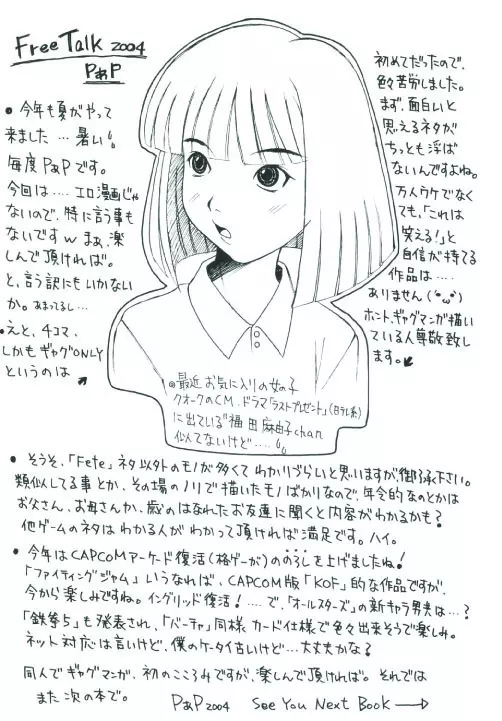 Free Talk 2004
PaーP
● 今年も夏がやって
来ました … 暑い
毎度PあPです。
今回は …. エロ漫画じゃ
ないので、特に言う事も
ないですw まぁ、楽
しんで頂ければ。
と、言う訳にもいかない
か。あまってるし…
●えと、4コマ、
しかもギャグONLY
というのは
初めてだったので、
色々苦労しました。
まず、面白いと
思えるネタが
ちっとも浮ば
ないんですよね。
万人ウケでなく
ても、「これは
笑える!」と
自信が持てる
作品は ….
ありません(´・ω・`)
ホント、ギャグマンガ描い
ている人尊敬致し
ます。
◎最近 お気に入りの女の子
クオークのCM、ドラマ「ラストプレゼント」(日テレ系)
に出ている"福田麻由子chan
似てないけど…..
● そうそ、「Fete」ネタ以外のモノが多くて わかりづらいと思いますが、御了承下さい。
類似してる事とか、その場のノリで描いたモノばかりなので、年令的なのとかは
お父さん、お母さんか、歳のはなれたお友達に聞くと内容がわかるかも?
他ゲームのネタはわかる人が わかって頂ければ満足です。ハイ。
● 今年はCAPCOMアーケード復活(格ゲーが)ののろしを上げましたね!
「ファイティングジャム」いうなれば、CAPCOM版「KOF」的な作品ですが、
今から楽しみですね。イングリッド復活! …. で、「オールスターズ」の新キャラ男共は …?
「鉄拳5」も発表され、「バーチャ」同様 カード仕様で色々出来そうで楽しみ。
ネット対応は言いけど、僕のケータイ古いけど…大丈夫かな?
同人でギャグマンガ、初のこころみですが、楽しんで頂ければ。それでは
また次の本で。 PあP 2004 See You Next Book →